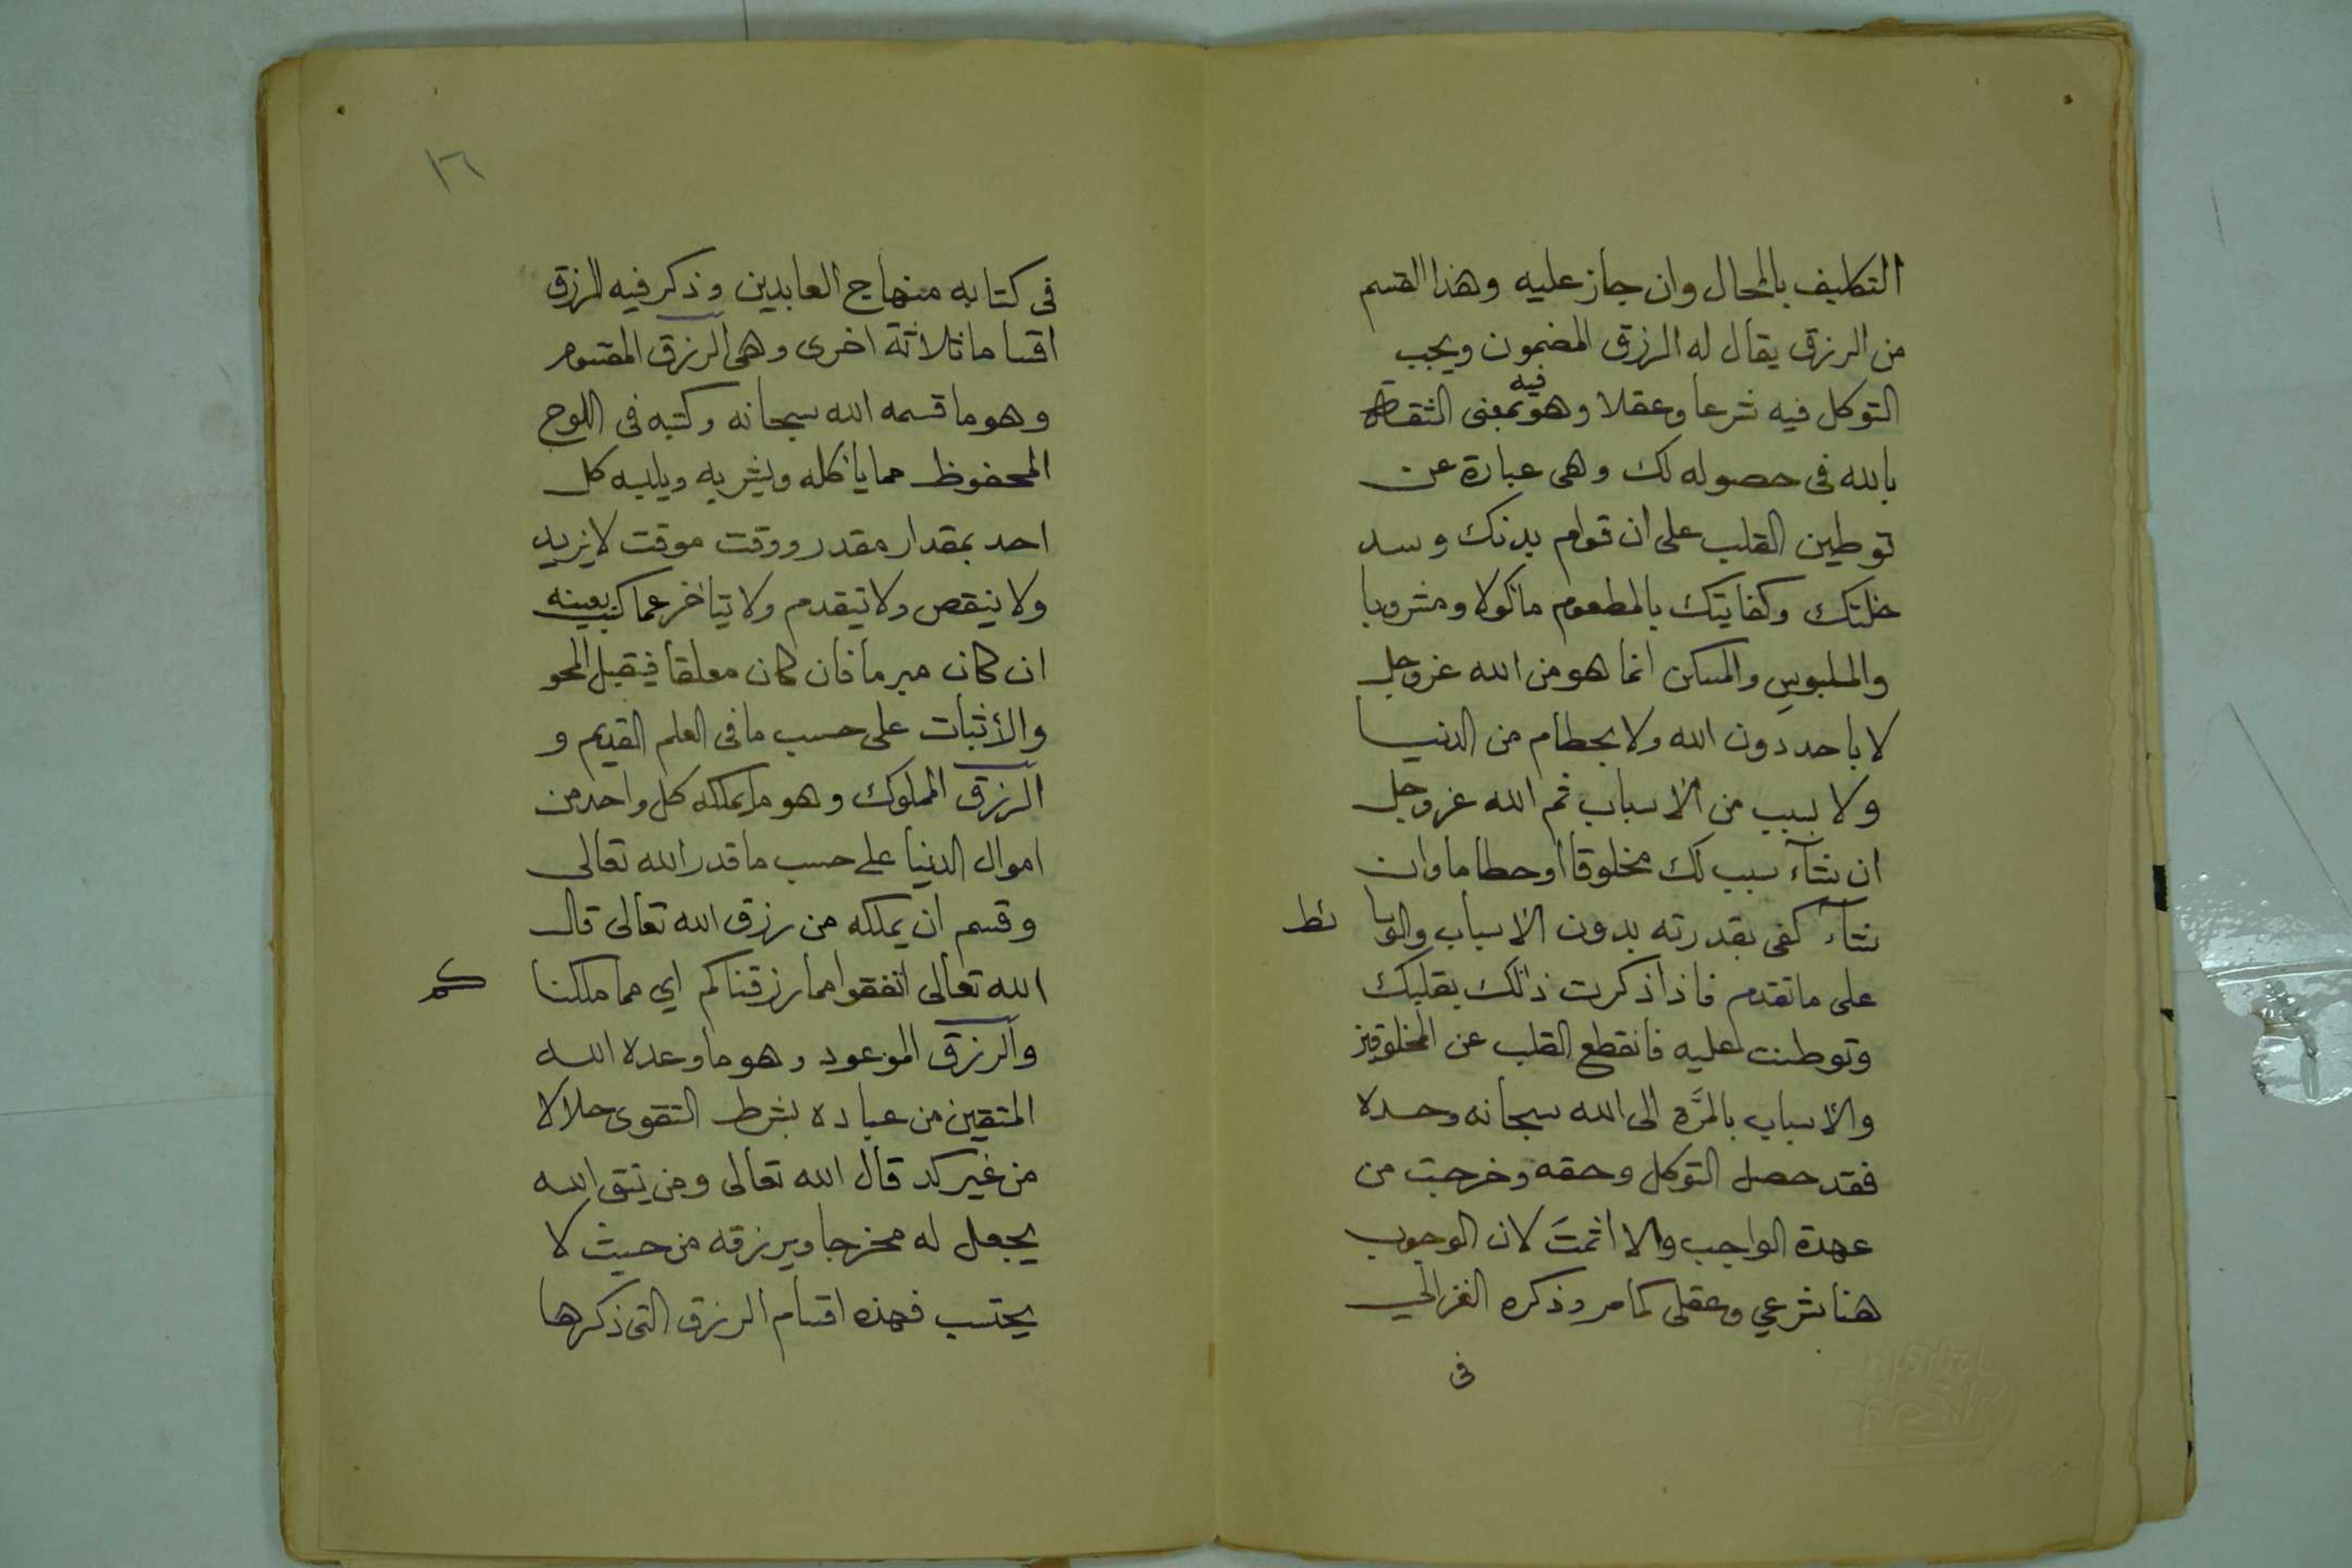 التكليف بالمحال وان جاز عليه وهذا القسم
من الرزق يقال له الرزق المضمون ويجب
التوكل فيه شرعا وعقلا وهو فيه بمعنى الثقة
بالله فى حصوله لك وهى عبارة عن
توطين القلب على ان قوام بدنك وسد
خلتك وكفايتك بالمطعوم ماكولا ومشروبا
والملبوسِ والمسكن انما هو من الله عز وجل
لا باحد دون الله ولا بحطام من الدنيا
ولا بسبب من الاسباب ثم الله عز وجل
ان شآء سبب لك مخلوقا أو حطاما وان
شآء كفى بقدرته بدون الأسباب والوسائط
على ما تقدم فاذا ذكرت ذلك بقلبك
وتوطنت عليه فانقطع القلب عن المخلوقين
والأسباب بالمَّرة الى الله سبحانه وحده
فقد حصل التوكل وحقه وخرجت من
عهدة الواجب والا اثمتَ لان الوجوب
هنا شرعي وعقلى كما مر وذكره الغزالي
فى
١٦
فى كتابه منهاج العابدين وذكر فيه للرزق
اقساما ثلاثة اخرى وهى الرزق المقسوم
وهو ما قسمه الله سبحانه وكتبه فى اللوح
المحفوظ مما يأكله ويشربه ويلبسه كل
احد بمقدار مقدر ووقت موقت لا يزيد
ولا ينقص ولا يتقدم ولا يتأخر عما كتب بعينه
ان كان مبرما فان كان معلقا فيقبل المحو
والأثبات على حسب ما فى العلم القديم و
الرزق المملوك وهو ما يملكه كل واحد من
اموال الدنيا على حسب ما قدر الله تعالى
وقسم ان يملكه من رزق الله تعالى قال
الله تعالى انفقوا مما رزقناكم اي مما ملكناكم
والرزق الموعود وهو ما وعده الله
المتقين من عباده بشرط التقوى حلالا
من غير كد قال الله تعالى ومن يتق الله
يجعل له مخرجا ويرزقه من حيث لا
يحتسب فهذه اقسام الرزق التى ذكرها